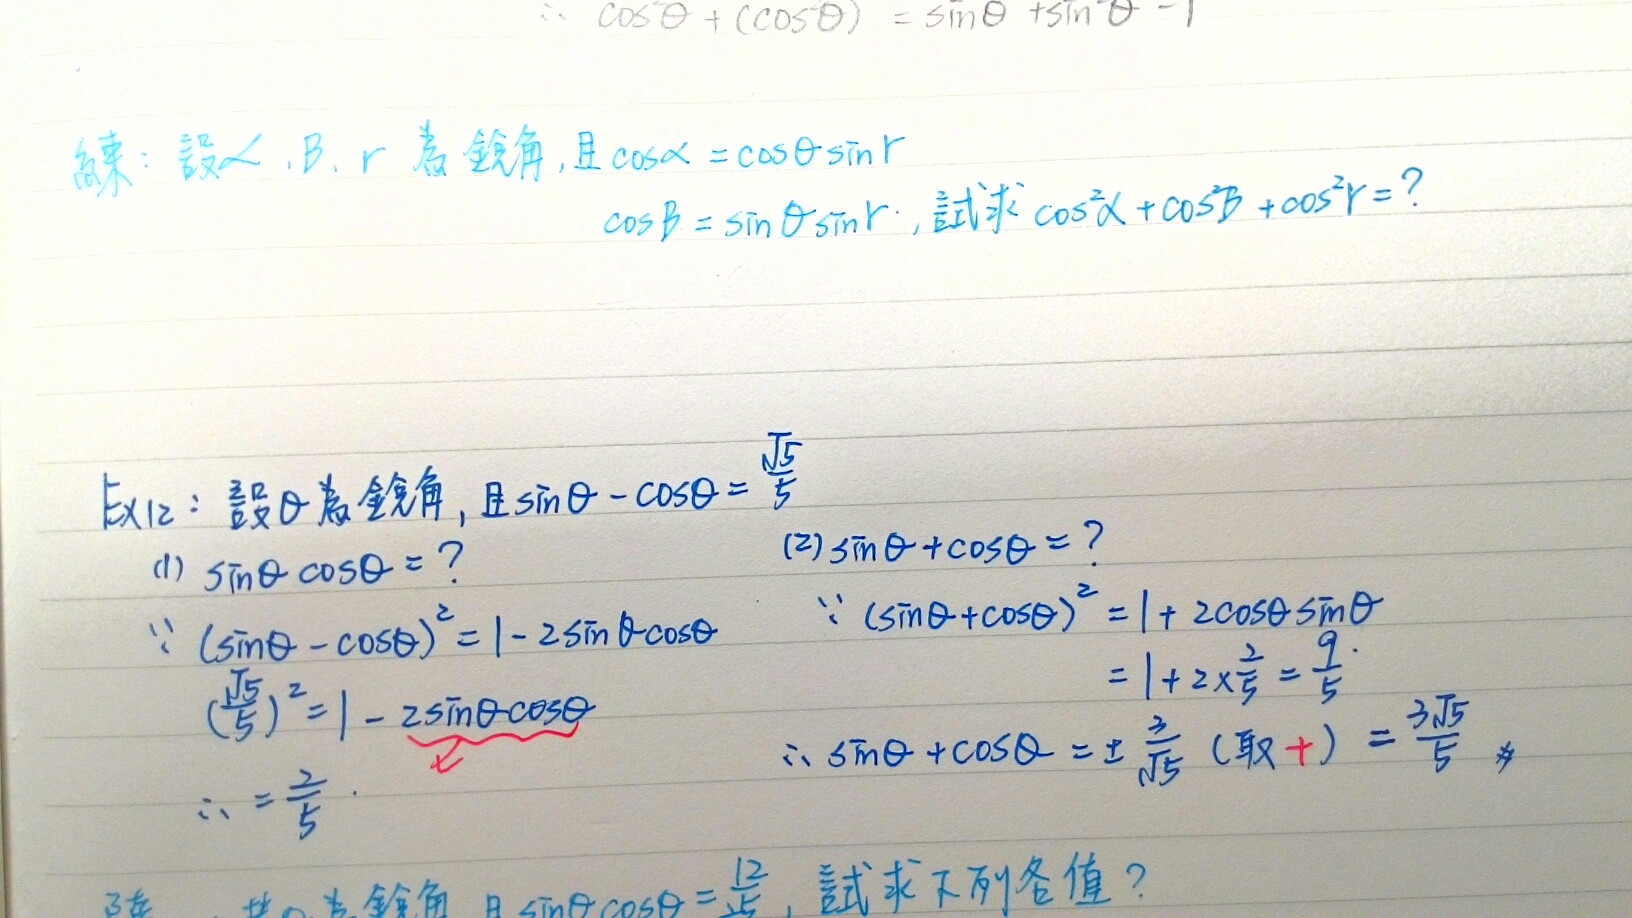 ∴ cosθ + (cosθ) = sinθ + sin θ - 1
練：設α、B、r 為銳角，且cosα = cosθ sin r
cosB = sinθ sin r，試求 cos²α + cos²B + cos²r = ?
Ex12：設θ為銳角，且sinθ - cosθ = √5/5
(1) sinθ cosθ = ?
(2) sinθ + cosθ = ?
∵ (sinθ - cosθ)² = 1 - 2sinθcosθ
(√5/5)² = 1 - 2sinθcosθ
∴ = 2/5
∵ (sinθ + cosθ)² = 1 + 2cosθsinθ
= 1 + 2×2/5 = 9/5
∴ sinθ + cosθ = ± 3/√5 (取+) = 3√5/5
為銳角 且sinθcosθ = 12/25，試求下列各值？